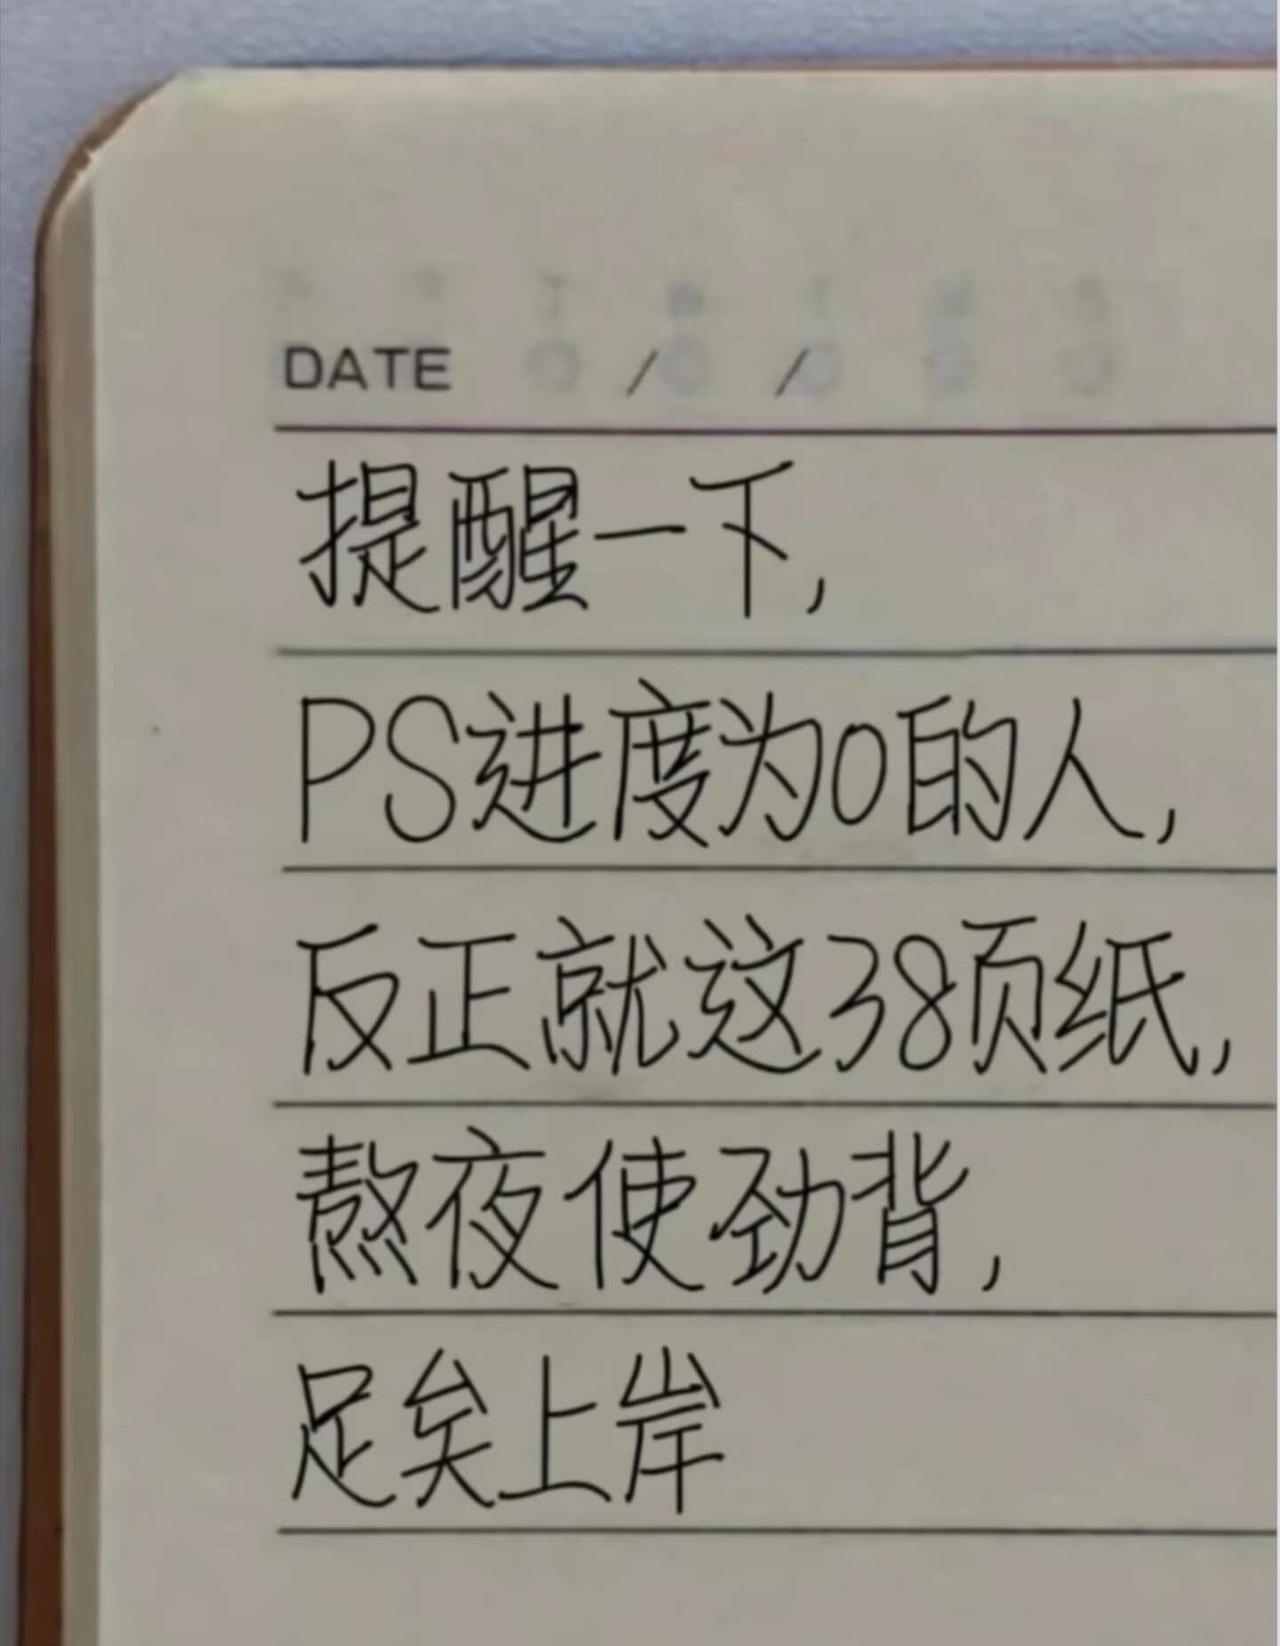 DATE / /
提醒一下,
PS进度为0的人,
反正就这38页纸,
熬夜使劲背,
足矣上岸